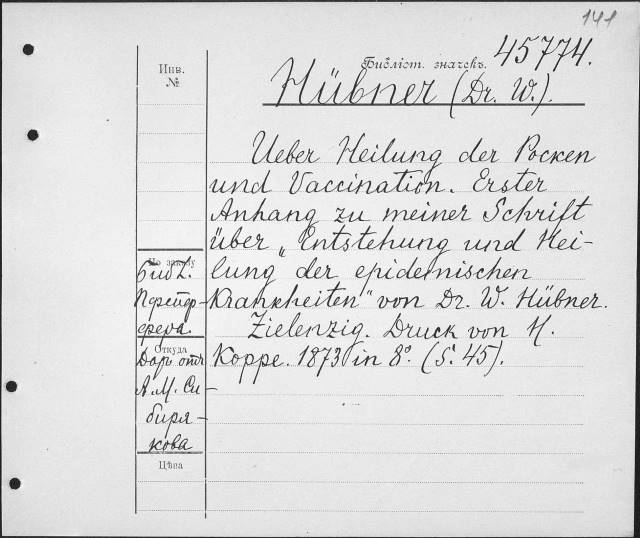 141
Библіот. значекъ. 45774.
Инв.
№
Hübner (Dr. W.).
Ueber Heilung der Pocken
und Vaccination. Erster
Anhang zu meiner Schrift
über „Entstehung und Hei-
lung der epidemischen
Krankheiten" von Dr. W. Hübner.
Zielenzig. Druck von H.
Koppe. 1873 in 8°. (S. 45).
По заказу
Библ.
Пфейф-
фера.
Откуда
Даръ отъ
А.М. Си-
биря-
кова
Цѣна